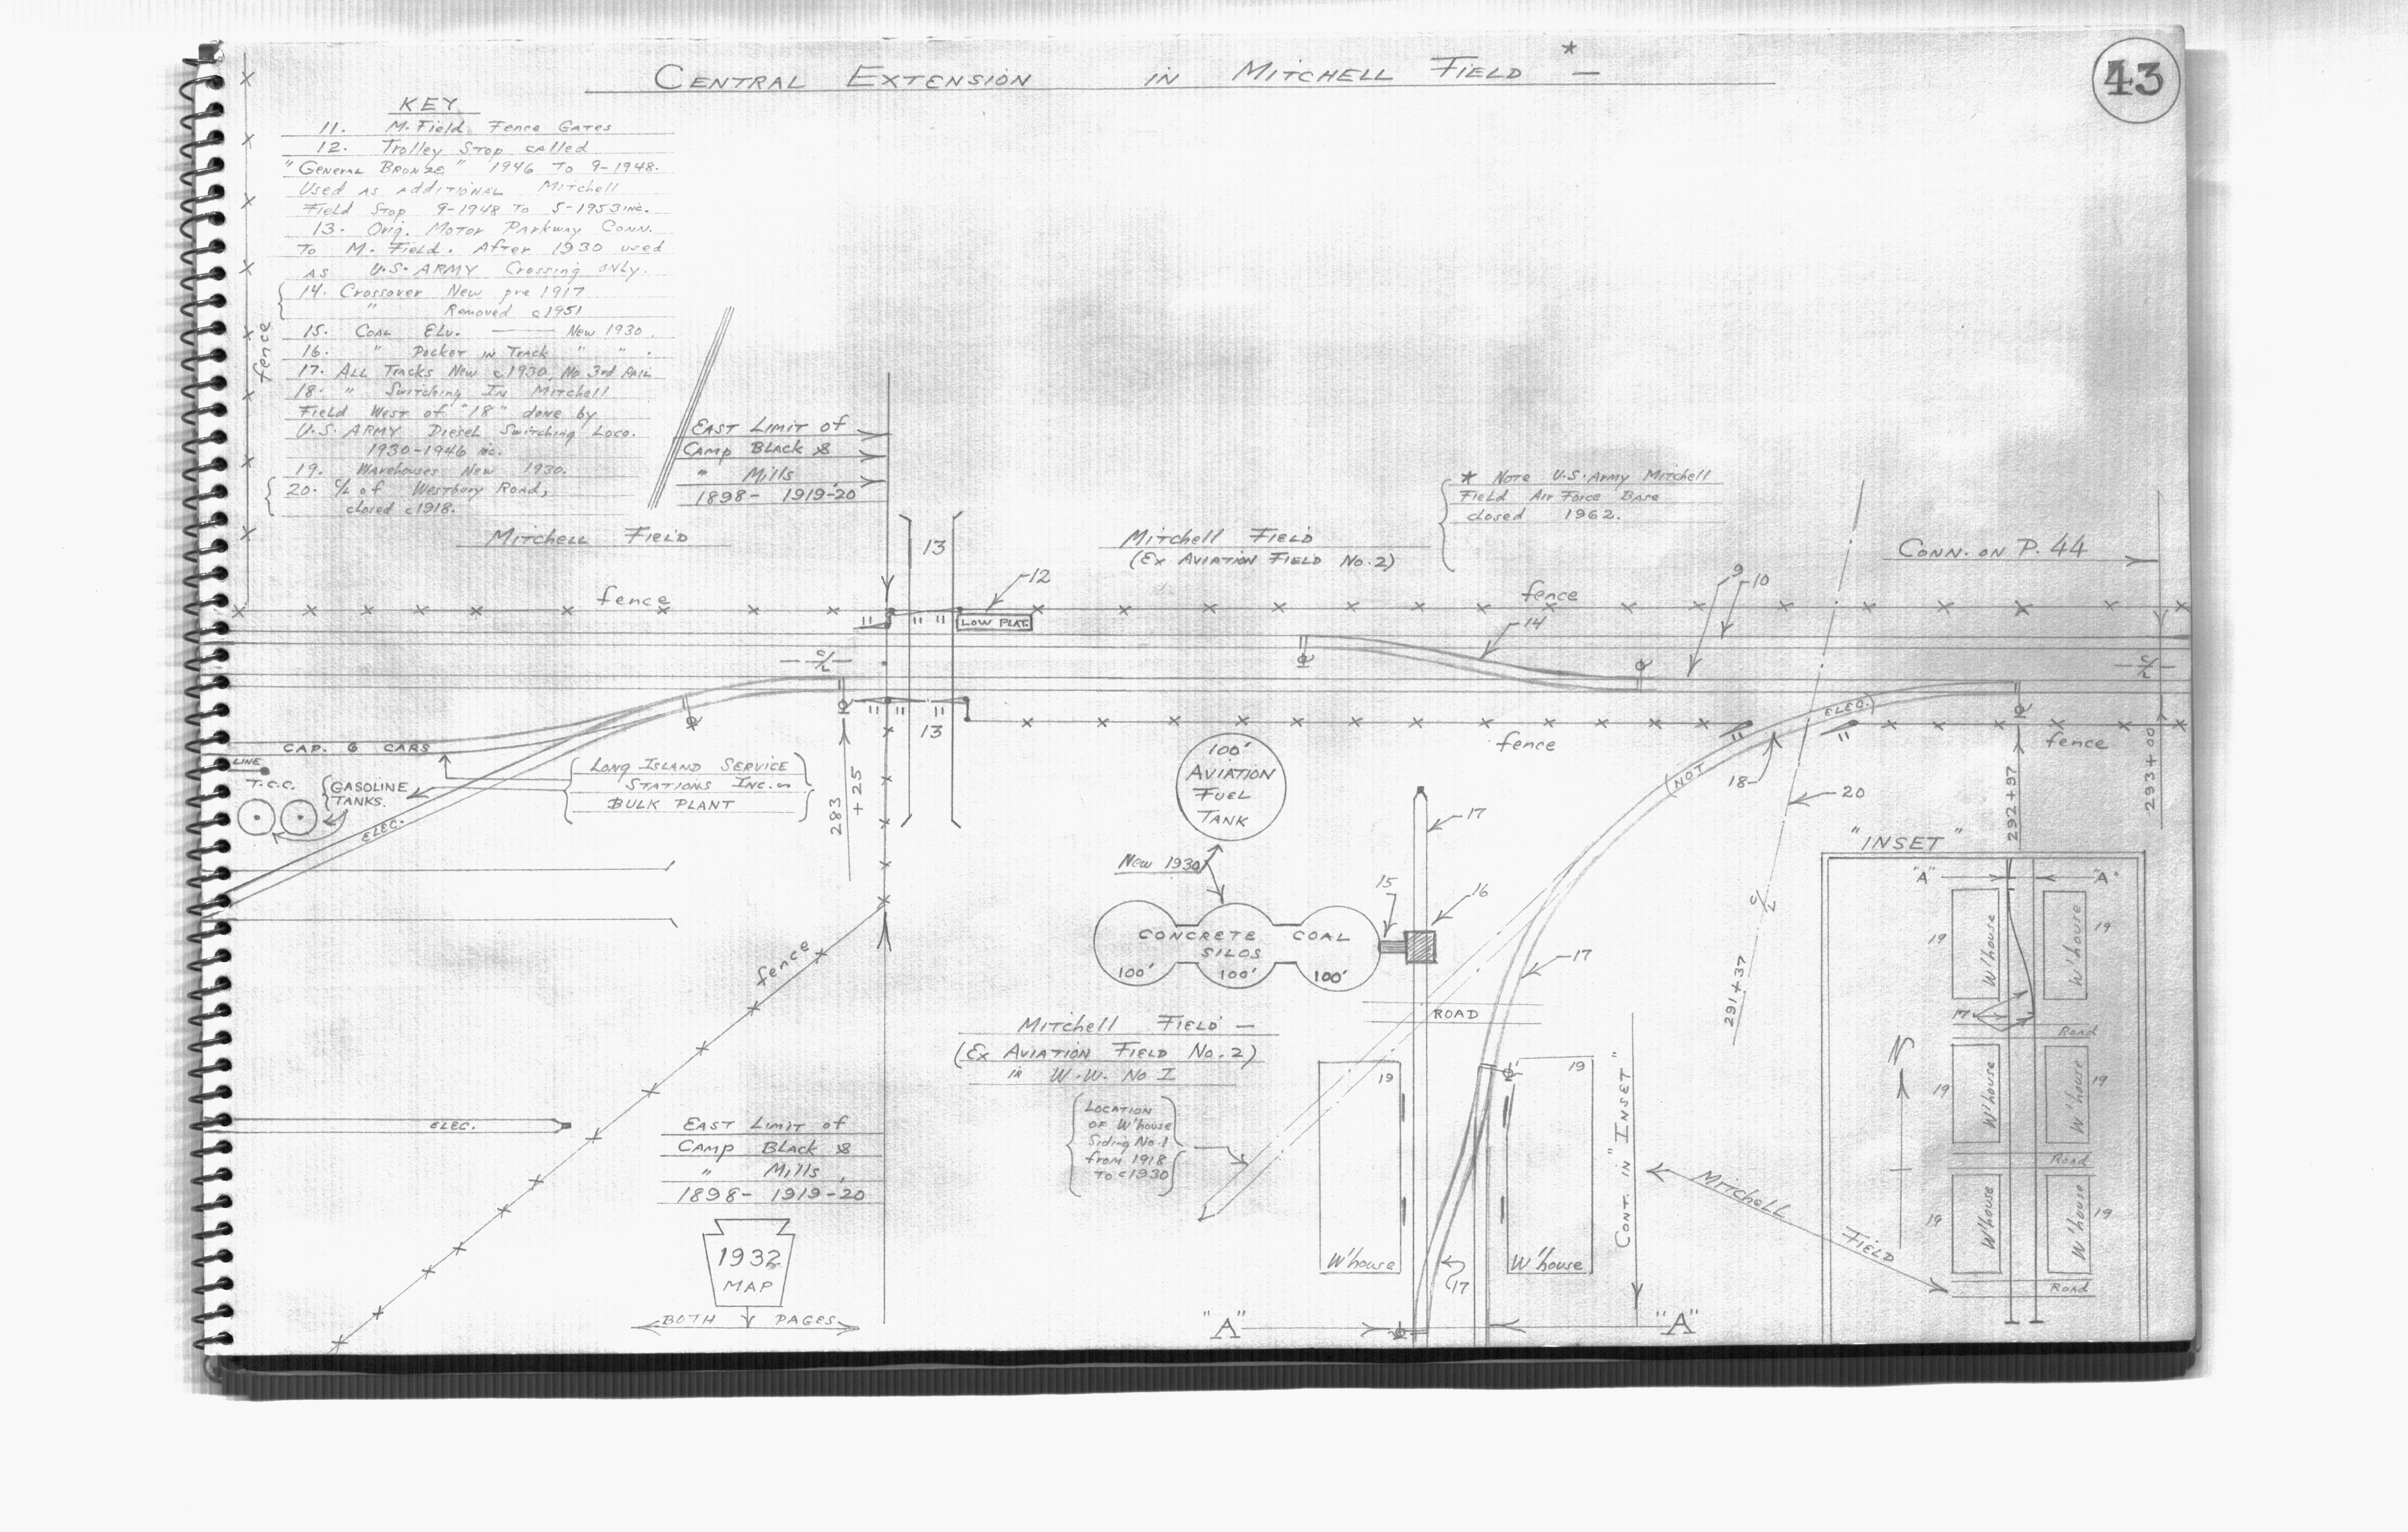 CENTRAL EXTENSION IN MITCHELL FIELD * —
43
KEY
11. M. Field Fence Gates
12. Trolley Stop called
"General Bronze" 1946 To 9-1948.
Used as additional Mitchell
Field Stop 9-1948 To 5-1953 inc.
13. Orig. Motor Parkway Conn.
To M. Field. After 1930 used
as U.S. ARMY Crossing only.
14. Crossover New pre 1917
" Removed c1951
15. Coal Elv. — New 1930.
16. " Pocker in Track " " .
17. All Tracks New c1930, No 3rd Rail
18. " Switching In Mitchell
Field West of "18" done by
U.S. ARMY Diesel Switching Loco.
1930-1946 inc.
19. Warehouses New 1930.
20. C/L of Westbury Road,
closed c1918.
fence
EAST LIMIT of
CAMP BLACK &
" Mills
1898- 1919-20
Mitchell Field
13
12
Mitchell Field
(Ex AVIATION FIELD No. 2)
* Note U.S. Army Mitchell
Field Air Force Base
closed 1962.
CONN. ON P. 44
9
10
fence
fence
11
11 11
LOW PLAT.
14
C/L
C/L
11 11 11
13
fence
11
11
fence
(NOT
ELEC.)
18
20
CAP. 6 CARS
LINE
T.C.C.
GASOLINE
TANKS.
ELEC.
LONG ISLAND SERVICE
STATIONS INC.
BULK PLANT
283
+25
100'
AVIATION
FUEL
TANK
New 1930
17
15
16
CONCRETE COAL
SILOS
100' 100' 100'
17
ROAD
C/L
291+37
292+97
293+00
"INSET"
"A" "A"
19 W'house W'house 19
17
Road
N
19 W'house W'house 19
Road
19 W'house W'house 19
Road
fence
Mitchell Field —
(Ex AVIATION FIELD No. 2)
in W.W. No I
LOCATION
OF W'house
Siding No. 1
from 1918
To c1930
19
19
W'house
W'house
17
CONT. IN "INSET"
Mitchell Field
ELEC.
EAST LIMIT of
CAMP BLACK &
" Mills
1898- 1919-20
1932
MAP
BOTH PAGES
"A" "A"